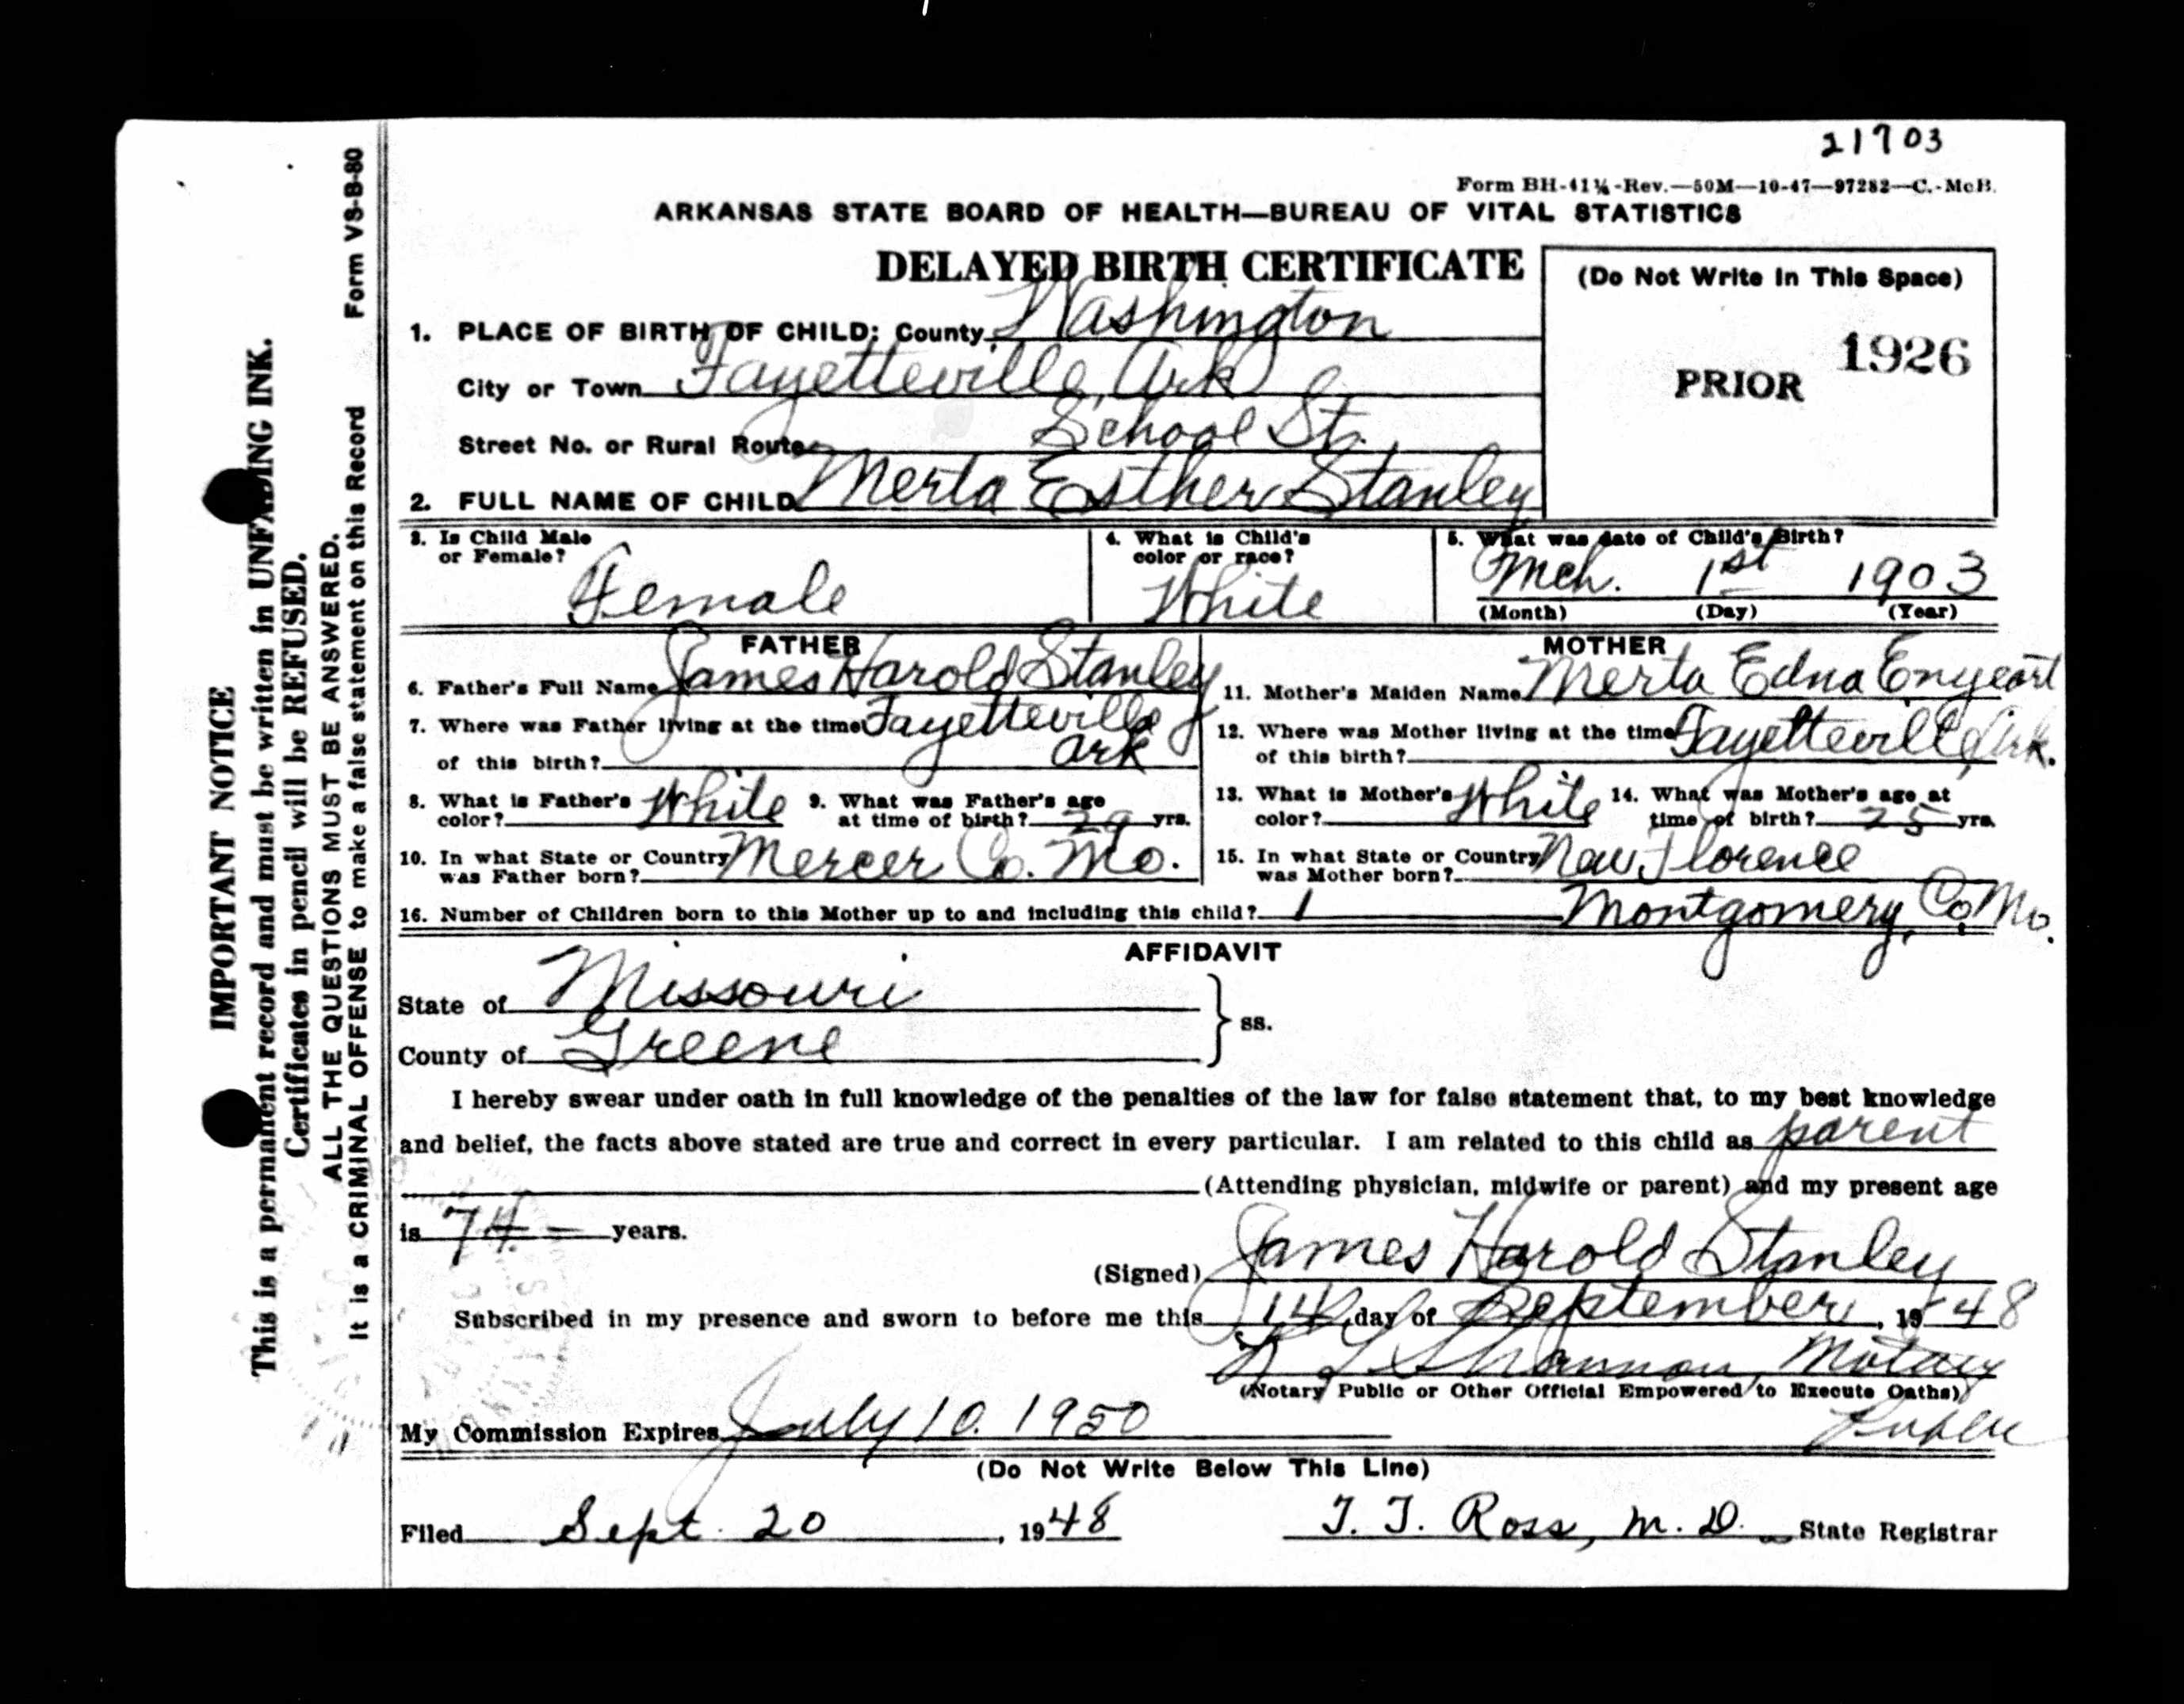 21703
Form BH-41¼-Rev.—50M—10-47—97282—C.-McB.
ARKANSAS STATE BOARD OF HEALTH—BUREAU OF VITAL STATISTICS
DELAYED BIRTH CERTIFICATE
(Do Not Write In This Space)
PRIOR 1926
1. PLACE OF BIRTH OF CHILD: County Washington
City or Town Fayetteville, Ark
Street No. or Rural Route School St.
2. FULL NAME OF CHILD Merta Esther Stanley
3. Is Child Male or Female? Female
4. What is Child's color or race? White
5. What was date of Child's Birth? Mch. 1st 1903
(Month) (Day) (Year)
FATHER
6. Father's Full Name James Harold Stanley
7. Where was Father living at the time of this birth? Fayetteville Ark
8. What is Father's color? White
9. What was Father's age at time of birth? 29 yrs.
10. In what State or Country was Father born? Mercer Co. Mo.
MOTHER
11. Mother's Maiden Name Merta Edna Enyeart
12. Where was Mother living at the time of this birth? Fayetteville, Ark.
13. What is Mother's color? White
14. What was Mother's age at time of birth? 25 yrs.
15. In what State or Country was Mother born? New Florence Montgomery, Co. Mo.
16. Number of Children born to this Mother up to and including this child? 1
AFFIDAVIT
State of Missouri
County of Greene
ss.
I hereby swear under oath in full knowledge of the penalties of the law for false statement that, to my best knowledge
and belief, the facts above stated are true and correct in every particular. I am related to this child as parent
(Attending physician, midwife or parent) and my present age
is 74 years.
(Signed) James Harold Stanley
Subscribed in my presence and sworn to before me this 14 day of September, 1948
Shannon, Notary Public
(Notary Public or Other Official Empowered to Execute Oaths)
My Commission Expires July 10. 1950
(Do Not Write Below This Line)
Filed Sept. 20, 1948
T. T. Ross, M. D. State Registrar
Form VS-B-80
IMPORTANT NOTICE
This is a permanent record and must be written in UNFADING INK.
Certificates in pencil will be REFUSED.
ALL THE QUESTIONS MUST BE ANSWERED.
It is a CRIMINAL OFFENSE to make a false statement on this Record